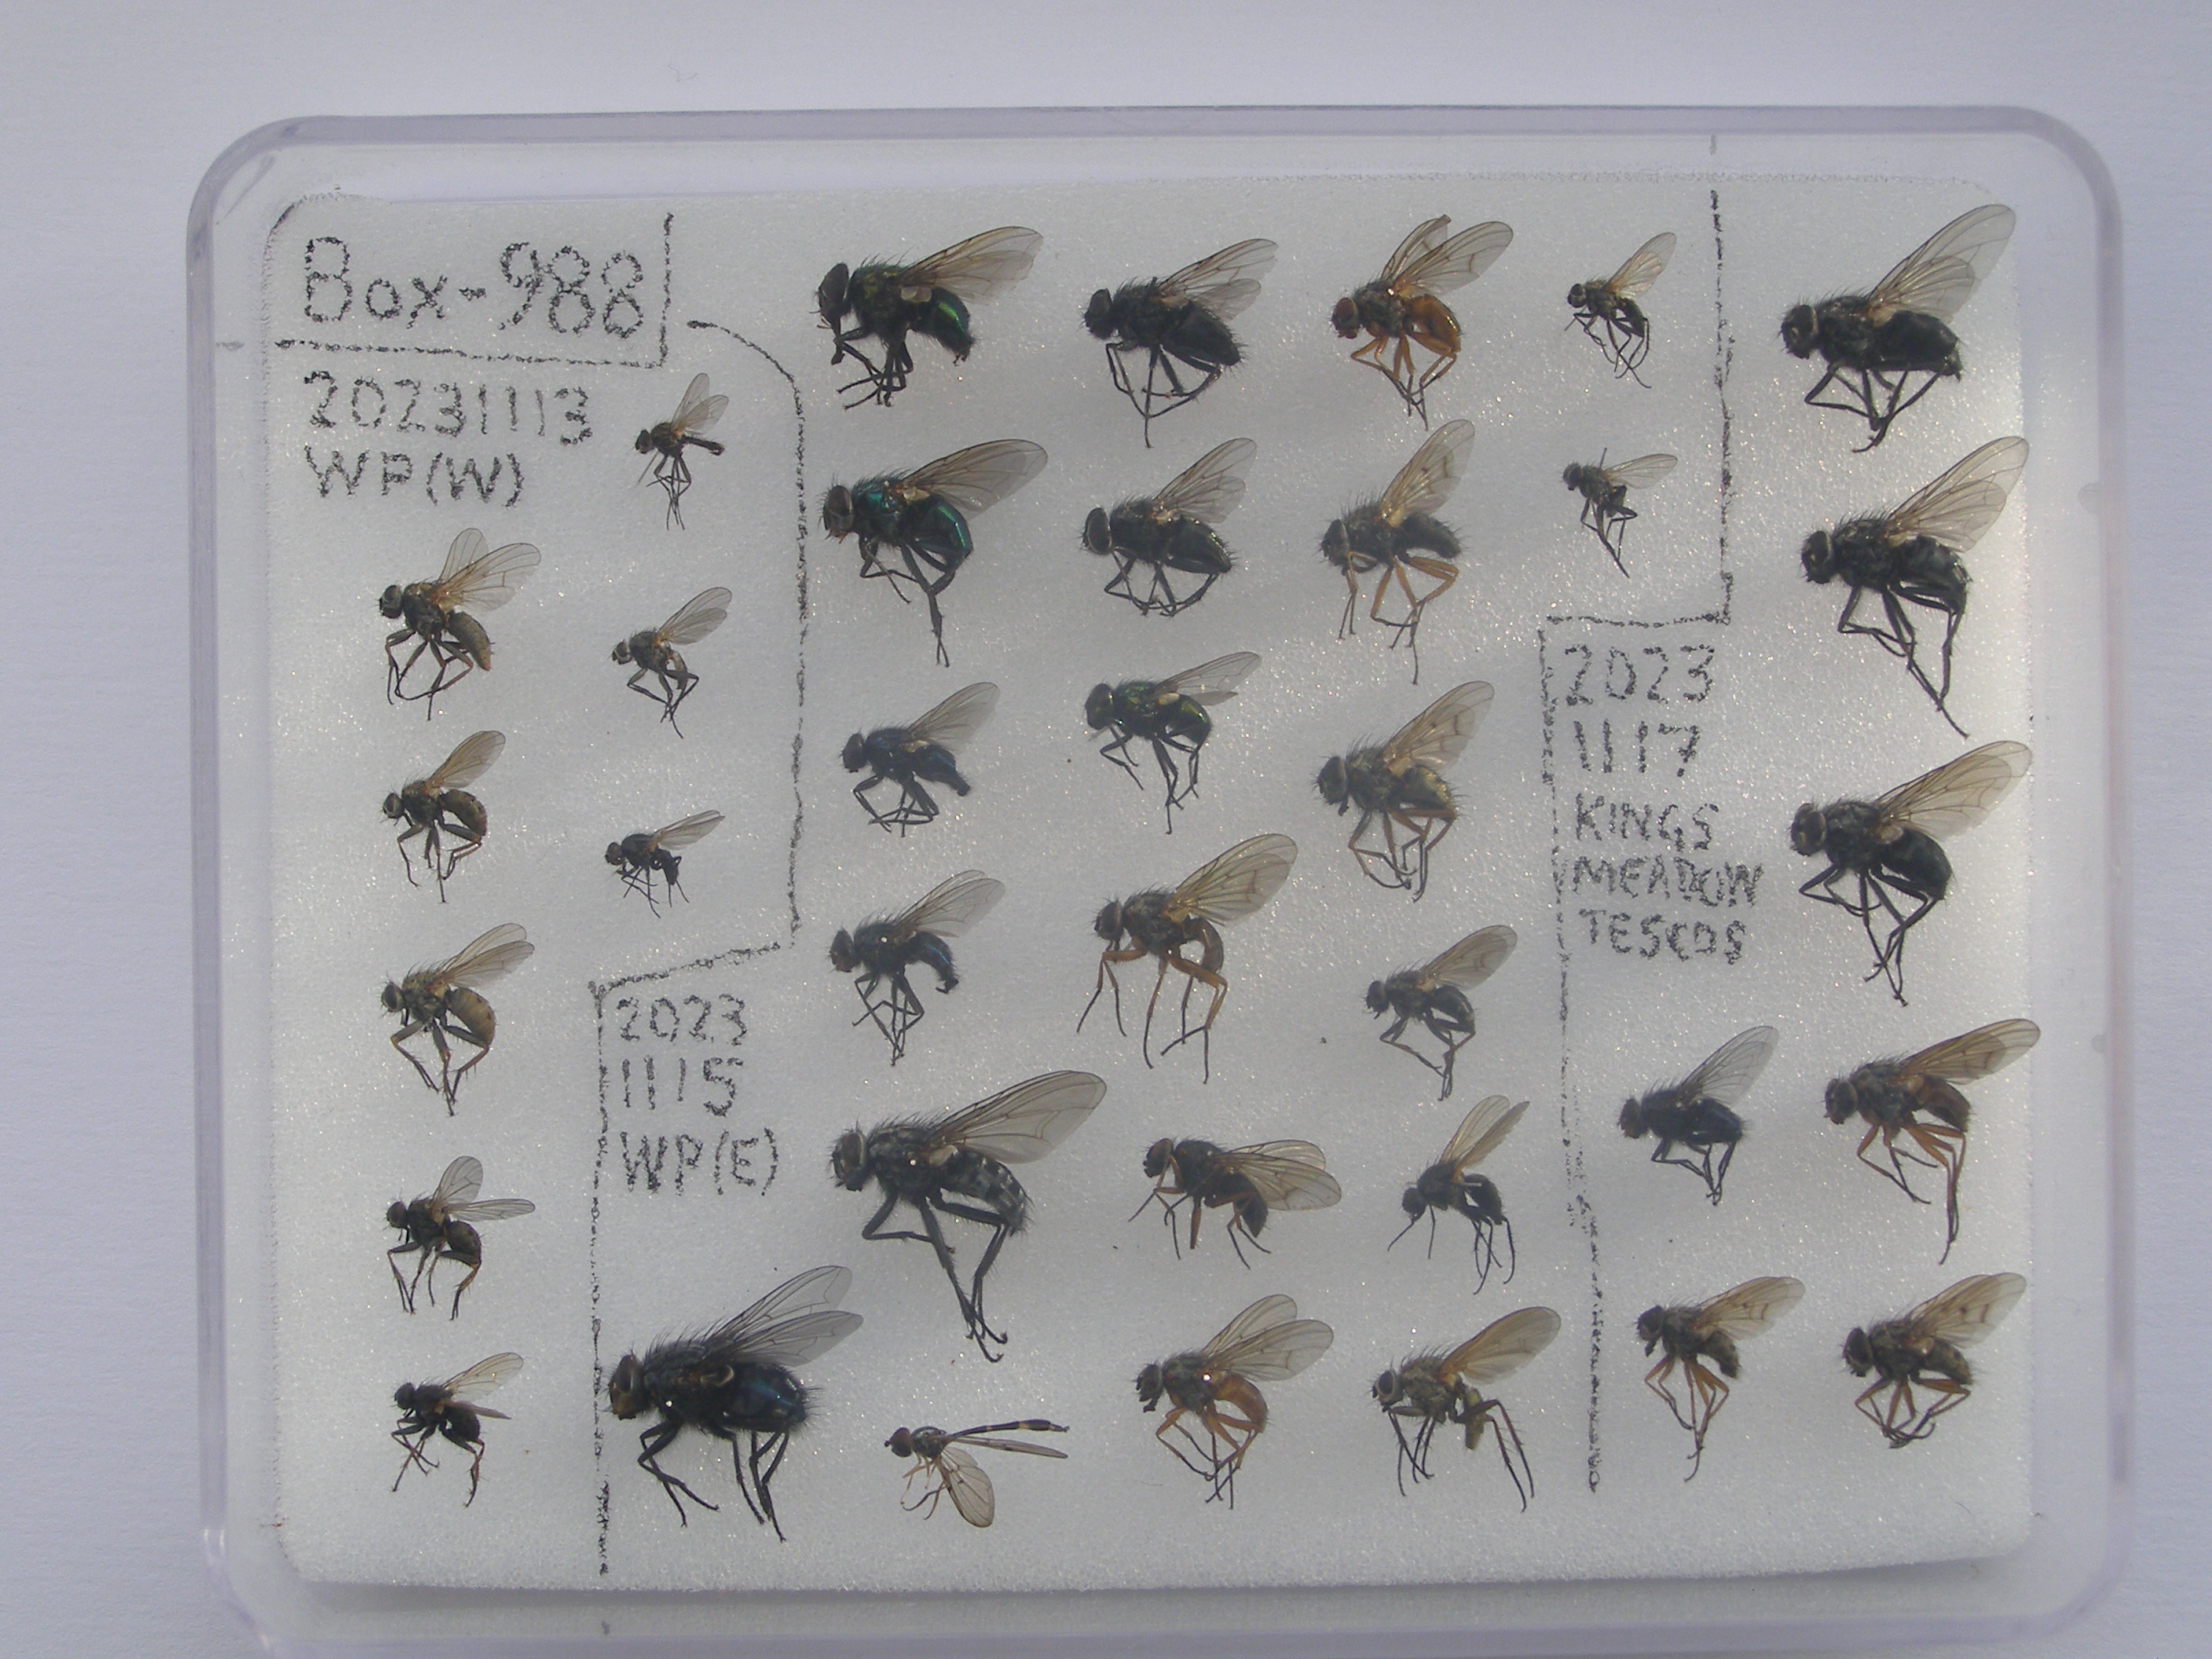 Box-988
20231113
WP(W)
2023
1115
WP(E)
2023
1117
KINGS
MEADOW
TESCOS